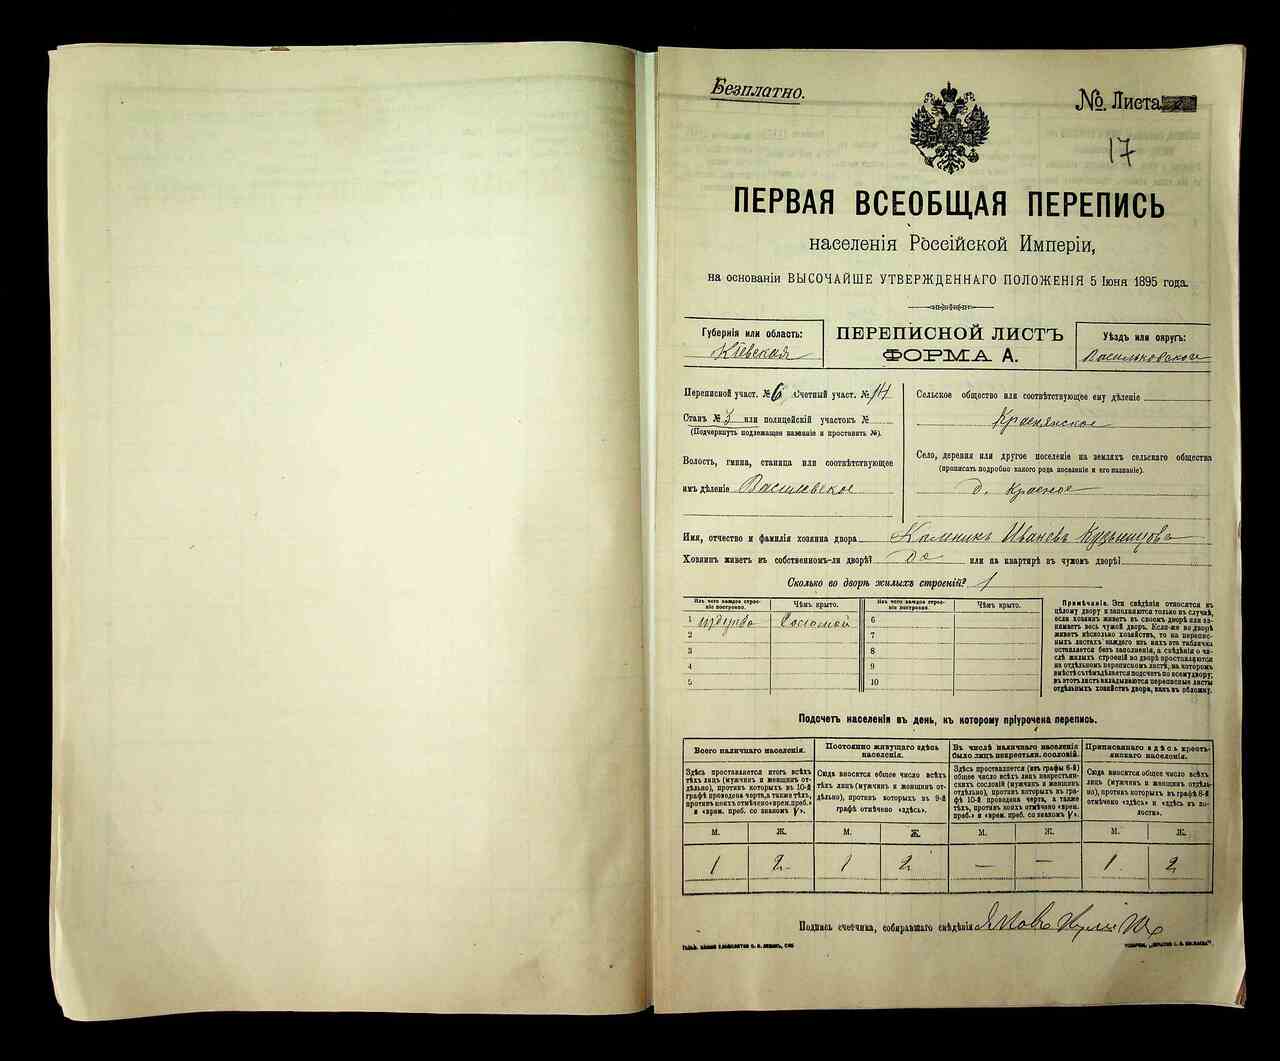 Безплатно.
№ Листа
17
ПЕРВАЯ ВСЕОБЩАЯ ПЕРЕПИСЬ
населенія Россійской Имперіи,
на основаніи ВЫСОЧАЙШЕ УТВЕРЖДЕННАГО ПОЛОЖЕНІЯ 5 Іюня 1895 года.
Губернія или область:
Кіевская
ПЕРЕПИСНОЙ ЛИСТЪ
ФОРМА А.
Уѣздъ или округъ:
Васильковской
Переписной участ. № 6 Счетный участ. № 14
Станъ № 3 или полицейскій участокъ №
(Подчеркнуть подлежащее названіе и проставить №).
Волость, гмина, станица или соотвѣтствующее
имъ дѣленіе Василевское
Сельское общество или соотвѣтствующее ему дѣленіе
Краснянское
Село, деревня или другое поселеніе на земляхъ сельскаго общества
(прописать подробно какого рода поселеніе и его названіе).
д. Красное
Имя, отчество и фамилія хозяина двора Иванъ
Хозяинъ живетъ въ собственномъ-ли дворѣ? да или на квартирѣ въ чужомъ дворѣ?
Сколько во дворѣ жилыхъ строеній? 1
Изъ чего каждое строе-
ніе построено.
Чѣмъ крыто.
Изъ чего каждое строе-
ніе построено.
Чѣмъ крыто.
1 издерева Соломой 6
2 7
3 8
4 9
5 10
Примѣчаніе. Эти свѣдѣнія относятся къ
цѣлому двору и заполняются только въ случаѣ,
если хозяинъ живетъ въ своемъ дворѣ или за-
нимаетъ весь чужой дворъ. Если-же во дворѣ
живетъ нѣсколько хозяйствъ, то на перепис-
ныхъ листахъ каждаго изъ нихъ эта табличка
оставляется безъ заполненія, а свѣдѣнія о чи-
слѣ жилыхъ строеній во дворѣ проставляются
на отдѣльномъ переписномъ листѣ, на которомъ
вмѣстѣ съ тѣмъ дѣлается подсчетъ по всему двору;
въ этотъ листъ вкладываются переписные листы
отдѣльныхъ хозяйствъ двора, какъ въ обложку.
Подсчетъ населенія въ день, къ которому пріурочена перепись.
Всего наличнаго населенія.
Здѣсь проставляется итогъ всѣхъ
тѣхъ лицъ (мужчинъ и женщинъ от-
дѣльно), противъ которыхъ въ 10-й
графѣ проведена черта, а также тѣхъ,
противъ коихъ отмѣчено «врем. преб.»
и «врем. преб. со знакомъ V».
Постоянно живущаго здѣсь
населенія.
Сюда вносится общее число всѣхъ
тѣхъ лицъ (мужчинъ и женщинъ от-
дѣльно), противъ которыхъ въ 9-й
графѣ отмѣчено «здѣсь».
Въ числѣ наличнаго населенія
было лицъ некрестьян. сословій.
Здѣсь проставляется (изъ графы 6-й)
общее число всѣхъ лицъ некрестьян-
скихъ сословій (мужчинъ и женщинъ
отдѣльно), противъ которыхъ въ гра-
фѣ 10-й проведена черта, а также
тѣхъ, противъ коихъ отмѣчено «врем.
преб.» и «врем. преб. со знакомъ V».
Приписаннаго здѣсь кресть-
янскаго населенія.
Сюда вносится общее число всѣхъ
лицъ (мужчинъ и женщинъ отдѣль-
но), противъ которыхъ въ графѣ 8-й
отмѣчено «здѣсь» и «здѣсь въ во-
лости».
М. Ж. М. Ж. М. Ж. М. Ж.
1 2 1 2 — — 1 2
Подпись счетчика, собиравшаго свѣдѣнія Яковъ